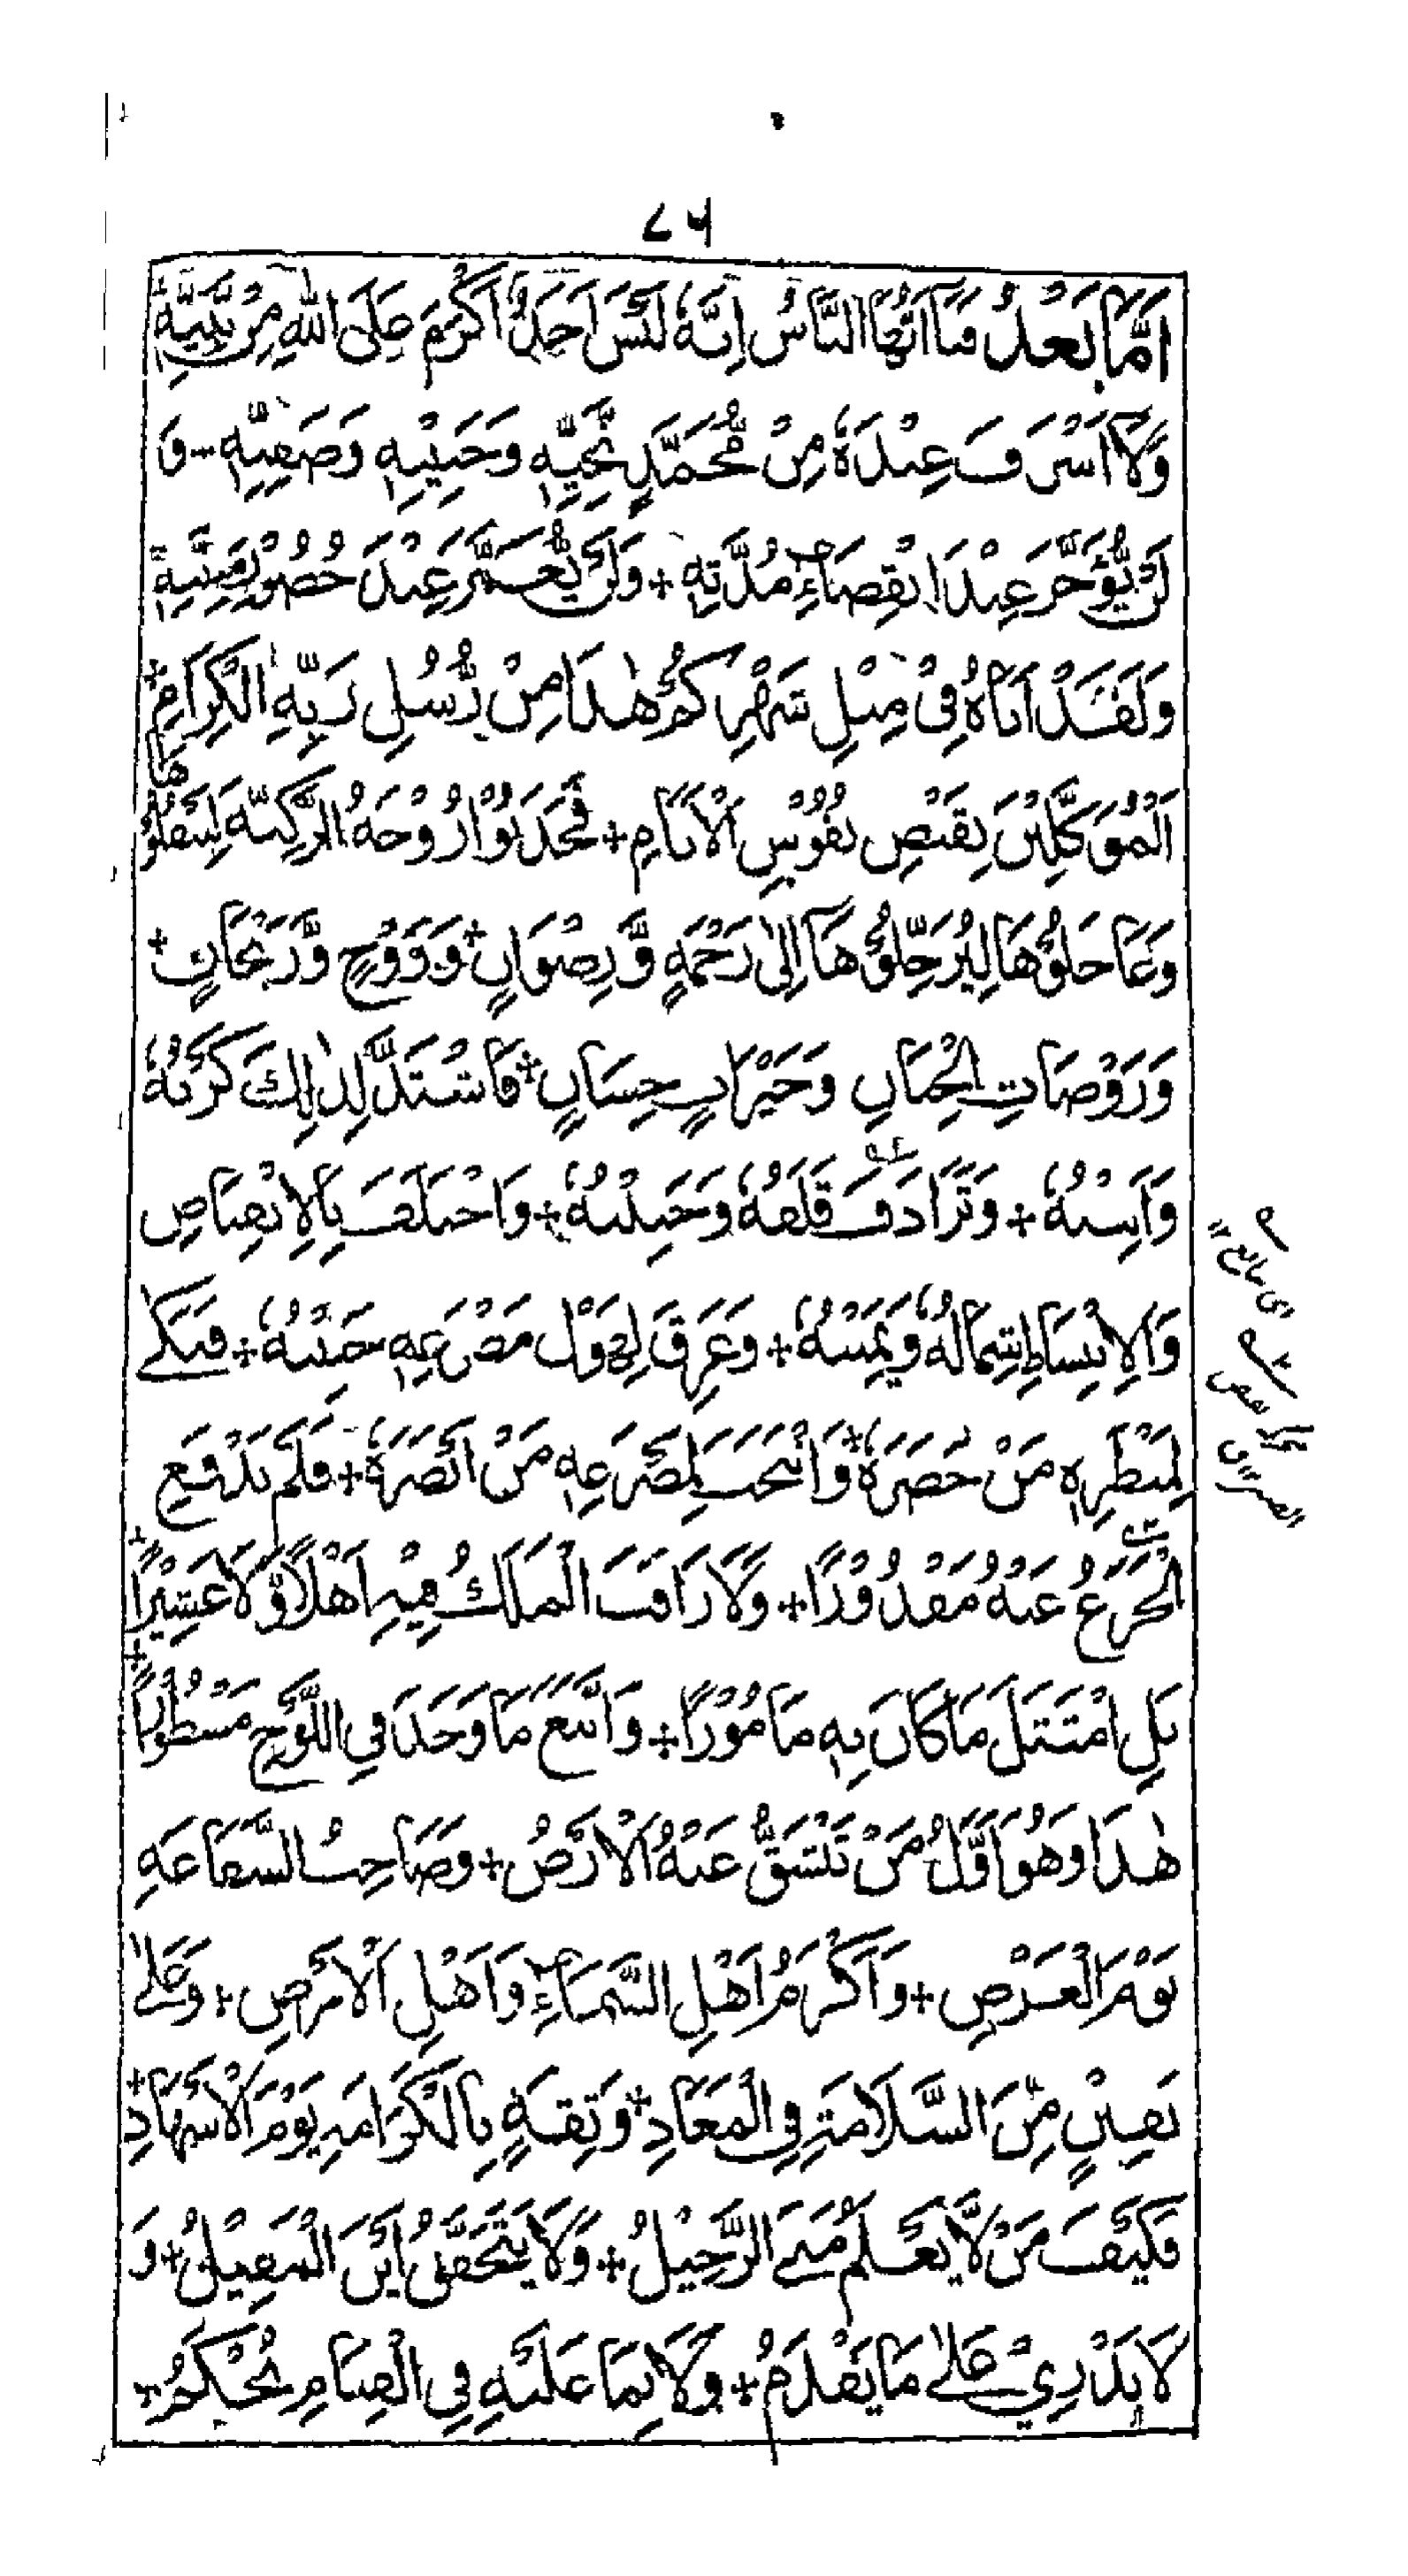 ٢٦
اَمَّا بَعْدُ فَيَآ اَيُّهَا النَّاسُ اِنَّهٗ لَيْسَ اَحَدٌ اَكْرَمَ عَلَى اللّٰهِ مِنْ نَّبِيِّهٖ
وَلَآ اَشْرَفَ عِنْدَهٗ مِنْ مُّحَمَّدٍ نَجِيِّهٖ وَحَبِيْبِهٖ وَصَفِيِّهٖ وَ
لَمْ يُؤَخَّرْ عِنْدَ انْقِضَآءِ مُدَّتِهٖ + وَلَمْ يُعَمَّرْ عِنْدَ حُضُوْرِ مَنِيَّتِهٖ
وَلَقَدْ اَتَاهُ فِيْ مِثْلِ شَهْرِكُمْ هٰذَا مِنْ رُّسُلِ رَبِّهِ الْكِرَامِ +
الْمُوَكَّلِيْنَ بِقَبْضِ نُفُوْسِ الْاَنَامِ + فَجَذَبُوْا رُوْحَهُ الزَّكِيَّةَ لِيَنْقُلُوْهَا
وَعَالَجُوْهَا لِيُرَحِّلُوْهَا اِلٰى رَحْمَةٍ وَّرِضْوَانٍ + وَرَوْحٍ وَّرَيْحَانٍ +
وَرَوْضَاتِ الْجِنَانِ وَخَيْرَاتٍ حِسَانٍ + فَاشْتَدَّ لِذٰلِكَ كَرْبُهٗ
وَاَنِيْنُهٗ + وَتَرَادَفَ قَلَقُهٗ وَحَنِيْنُهٗ + وَاخْتَلَفَ بِالِانْقِبَاضِ
وَالِانْبِسَاطِ شِمَالُهٗ وَيَمِيْنُهٗ + وَعَرِقَ لِهَوْلِ مَصْرَعِهٖ جَبِيْنُهٗ + فَبَكٰى
لِمَنْظَرِهٖ مَنْ حَضَرَهٗ + وَانْتَحَبَ لِمَصْرَعِهٖ مَنْ اَبْصَرَهٗ + فَلَمْ يَدْفَعِ
الْجَزَعُ عَنْهُ مَقْدُوْرًا + وَلَا رَاقَبَ الْمَلَكُ فِيْهِ اَهْلًا وَّلَا عَشِيْرًا +
بَلِ امْتَثَلَ مَا كَانَ بِهٖ مَامُوْرًا + وَاتَّبَعَ مَا وَجَدَ فِي اللَّوْحِ مَسْطُوْرًا +
هٰذَا وَهُوَ اَوَّلُ مَنْ تَنْشَقُّ عَنْهُ الْاَرْضُ + وَصَاحِبُ الشَّفَاعَةِ
يَوْمَ الْعَرْضِ + وَاَكْرَمُ اَهْلِ السَّمَآءِ وَاَهْلِ الْاَرْضِ + وَعَلٰى
يَقِيْنٍ مِّنَ السَّلَامَةِ فِي الْمَعَادِ + وَثِقَةٍ بِالْكَرَامَةِ يَوْمَ الْاَشْهَادِ +
فَكَيْفَ مَنْ لَّا يَعْلَمُ مَتَى الرَّحِيْلُ + وَلَا يَتَحَقَّقُ اَيْنَ الْمَقِيْلُ + وَ
لَا يَدْرِيْ عَلٰى مَا يَقْدَمُ + وَلَا بِمَا عَلَيْهِ فِي الْقِيَامِ يُحْكَمُ +